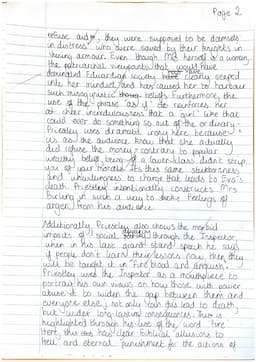 Page 2
refuse aid", they were supposed to be damsels
in distress who were saved by their knights in
shining armour. Even though Mrs herself is a woman,
the patriarchal viewpoints that would have
dominated Edwardian society have clearly seeped
into her mindset and has caused her to harbour
such misogynistic beliefs. Furthermore, the
use of the phrase "as if" do reinforces her
at sheer incredulousness that a "girl" like that
could ever do something so out of the ordinary.
Priestley uses dramatic irony here because
us as the audience know that she actually
did refuse the money contrary to popular
wealthy belief, being of a lower class didn't strip
you of your morals. It's this same stubbornness
and unwillingness to change that leads to Eva's
death. Priestley intentionally constructs Mrs
Birling in such a way to stroke feelings of
anger from his audience.
Additionally, Priestley also shows the morbid
impacts of social through the Inspector
when in his last grand stand speech he says
if people don't learn their lessons now, then they
will be taught it in "fire blood and anguish".
Priestley used the Inspector as a mouthpiece to
portray his own views on how those with power
abuse it to widen the gap between them and
everyone else, not only can this lead to death,
but wider long lasting consequences. This is
highlighted through his use of the word "fire"
here, this has clear biblical allusions to
hell, and eternal punishment for the actions of